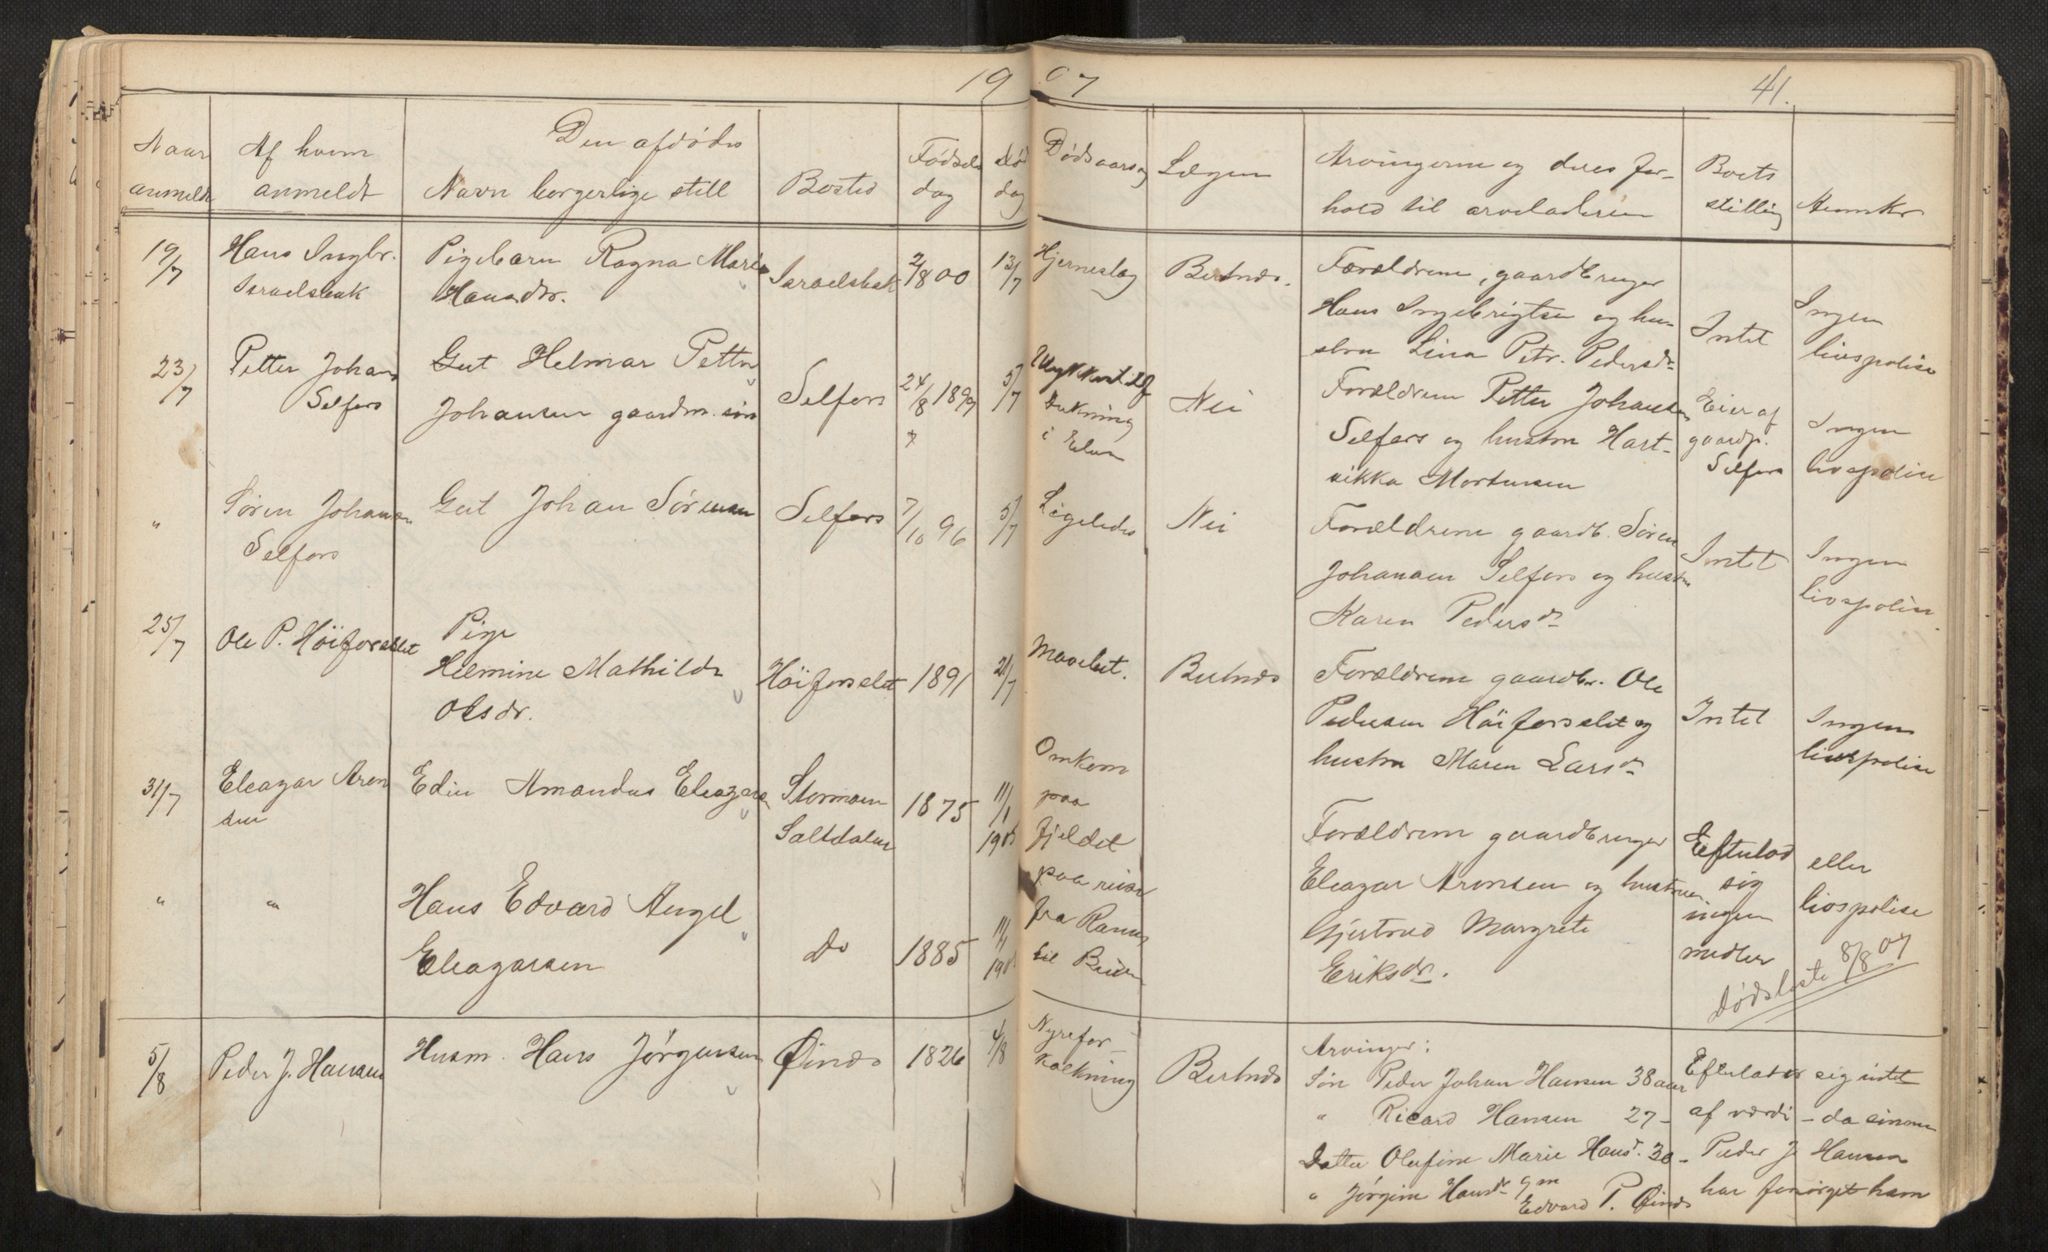 19 07
41.
Naar anmeldt
Af hvem anmeldt
Den afdødes
Navn borgerlige still
Bosted
Fødsels dag
Død dag
Dødsaarsag
Lægen
Arvingerne og deres for-
hold til arveladeren
Boets stilling
Anmkr
19/7
Hans Ingbr.
Israelsbak
Pigebarn Ragna Marie
Hansdtr.
Israelsbak
2/8 00
13/7
Hjerneslag
Bertnes.
Forældrene, gaardbruger
Hans Ingebrigtsen og hu-
stru Lina Petr. Pedersdr
Intet
Ingen
livspolise
23/7
Petter Johans
Selfors
Gut Helmar Petter
Johansen gaardm. søn
Selfors
24/8 1897
7
5/7
Ulykkestilf
Drukning
i Elven
Nei
Forældrene Petter Johansen
Selfors og hustru Hart-
vikka Mortensen
Eier af
gaardp.
Selfors
Ingen
livspolise
"
Søren Johansen
Selfors
Gut Johan Sørensen
Selfors
7/10 96
5/7
Ligeledes
Nei
Forældrene gaardb. Søren
Johansen Selfors og hustru
Karen Pedersdr
Intet
Ingen
livspolise.
25/7
Ole P. Høiforslet
Pige
Helmine Mathilde
Olsdr.
Høiforslet
1891
21/7
Bertnes
Forældrene gaardbr. Ole
Pedersen Høiforslet og
hustru Maren Larsdr
Intet
Ingen
livspolise
31/7
Eleazar Aron
sen
Edin Amandus Eleazars
Stormoen
Saltdalen
1875
11/1
1905
Omkom
paa
fjeldet
paa reise
fra Ranen
til Beiern
Forældrene gaardbruger
Eleazar Aronsen og hustruen
Gjertrud Margrete
Eriksdr.
Efterlod
sig
ingen
midler
eller
livspolise
"
"
Hans Edvard Angel
Eleazarsen
Do
1885
11/1
1905
Dødsliste 8/8 07
5/8
Peder J. Hansen
Husm. Hans Jørgensen
Øines
1826
4/8
Nyrefor-
kalkning
Bertnes
Arvinger:
Søn Peder Johan Hansen 38 aar
" Ricard Hansen 27 -
Datter Olufine Marie Hansdr. 30 -
" Jørgine Hansdr gm
Edvard P. Øines
Efterlader sig intet
af værdi - da sønnen
Peder J. Hansen
har forsørget ham